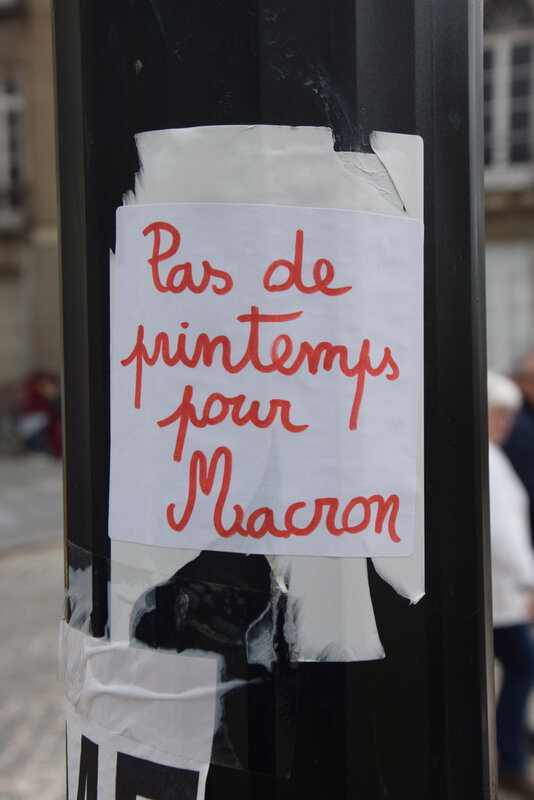 Pas de
printemps
pour
Macron